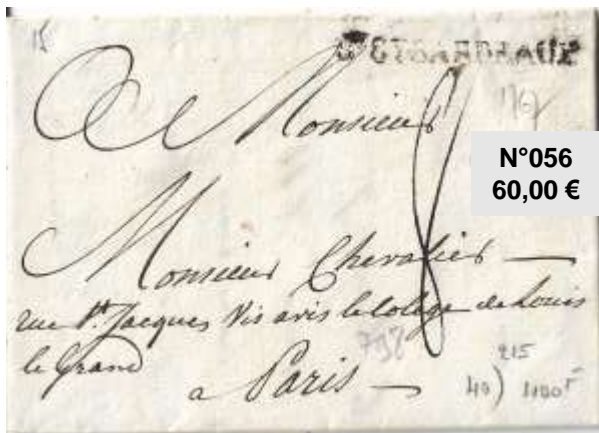 15
A Monsieur
1767
N°056
60,00 €
Monsieur Chevalier
rue St. Jacques Vis avis le Colege de Louis
le Grand
798
a Paris
8
215
40) 1100 F